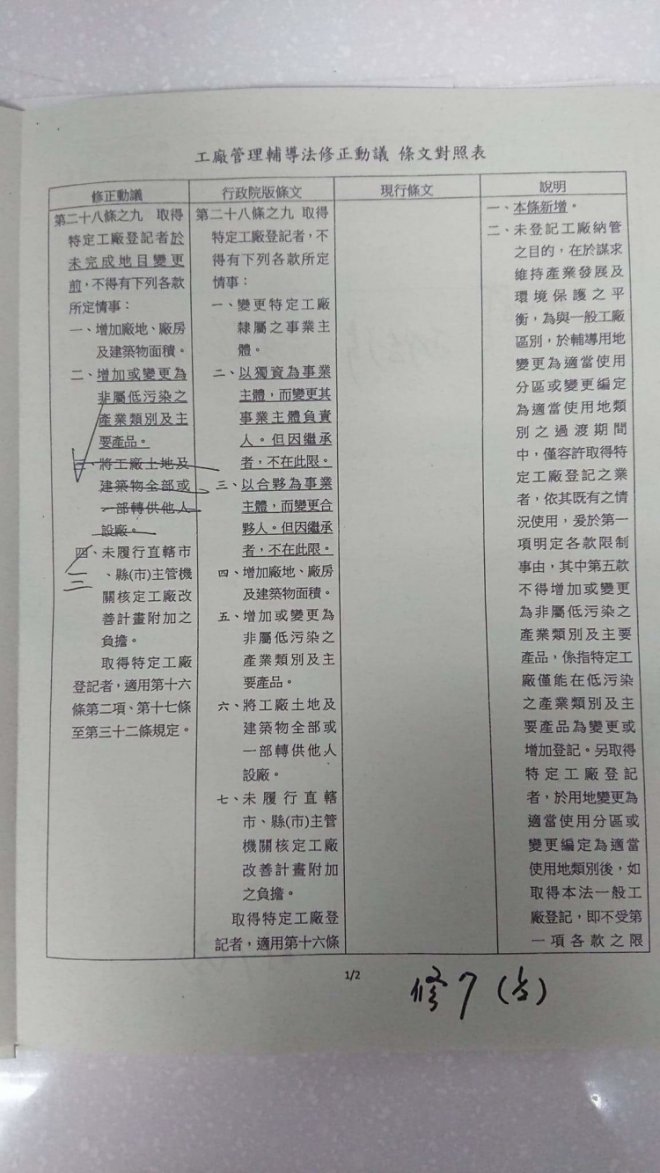 工廠管理輔導法修正動議 條文對照表
修正動議
第二十八條之九 取得
特定工廠登記者於
未完成地目變更
前，不得有下列各款
所定情事：
一、增加廠地、廠房
及建築物面積。
二、增加或變更為
非屬低污染之
產業類別及主
要產品。
三、將工廠土地及
建築物全部或
一部轉供他人
設廠。
四、未履行直轄市
三
、縣(市)主管機
關核定工廠改
善計畫附加之
負擔。
取得特定工廠
登記者，適用第十六
條第二項、第十七條
至第三十二條規定。
行政院版條文
第二十八條之九 取得
特定工廠登記者，不
得有下列各款所定
情事：
一、變更特定工廠
隸屬之事業主
體。
二、以獨資為事業
主體，而變更其
事業主體負責
人。但因繼承
者，不在此限。
三、以合夥為事業
主體，而變更合
夥人。但因繼承
者，不在此限。
四、增加廠地、廠房
及建築物面積。
五、增加或變更為
非屬低污染之
產業類別及主
要產品。
六、將工廠土地及
建築物全部或
一部轉供他人
設廠。
七、未履行直轄
市、縣(市)主管
機關核定工廠
改善計畫附加
之負擔。
取得特定工廠登
記者，適用第十六條
現行條文
說明
一、本條新增。
二、未登記工廠納管
之目的，在於謀求
維持產業發展及
環境保護之平
衡，為與一般工廠
區別，於輔導用地
變更為適當使用
分區或變更編定
為適當使用地類
別之過渡期間
中，僅容許取得特
定工廠登記之業
者，依其既有之情
況使用，爰於第一
項明定各款限制
事由，其中第五款
不得增加或變更
為非屬低污染之
產業類別及主要
產品，係指特定工
廠僅能在低污染
之產業類別及主
要產品為變更或
增加登記。另取得
特定工廠登記
者，於用地變更為
適當使用分區或
變更編定為適當
使用地類別後，如
取得本法一般工
廠登記，即不受第
一項各款之限
1/2
修7(1/2)